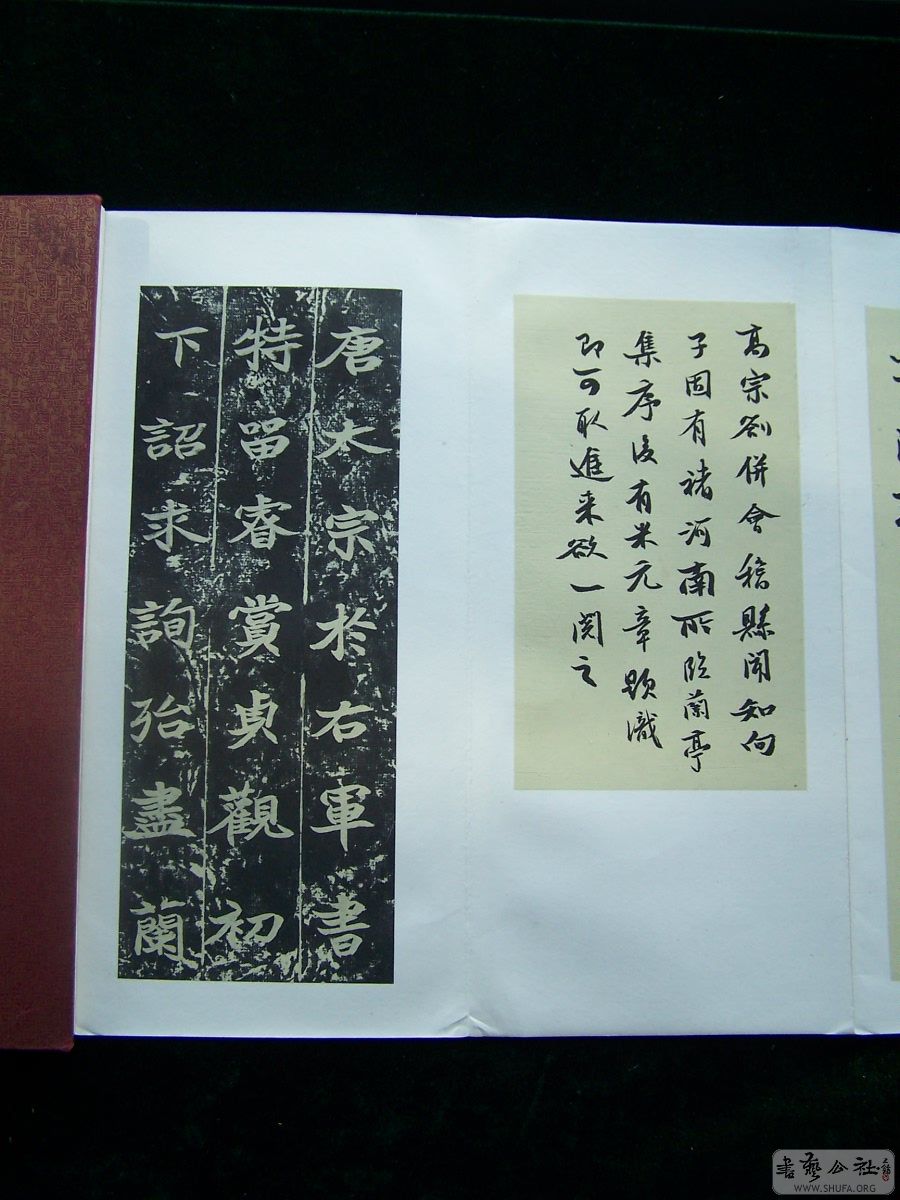 高宗劄併會稽縣聞知向
子固有褚河南所臨蘭亭
集序後有米元章題識
即可取進来欲一閱之
唐太宗於右軍書
特留睿賞貞觀初
下詔求詢殆盡蘭
書藝公社
WWW.SHUFA.ORG